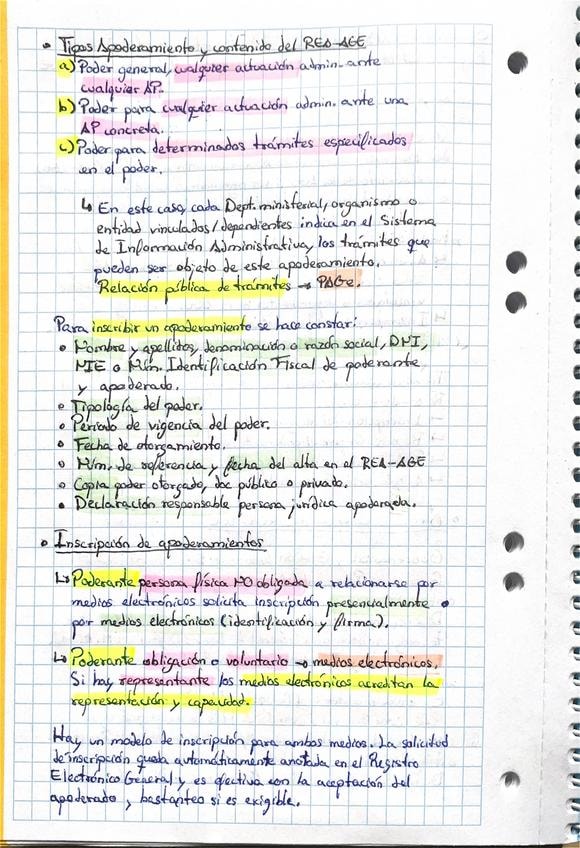 • Tipos Apoderamiento y contenido del REA-AGE
a) Poder general, cualquier actuación admin. ante
cualquier AP.
b) Poder para cualquier actuación admin. ante una
AP concreta.
c) Poder para determinados trámites especificados
en el poder.
↳ En este caso, cada Dept. ministerial, organismo o
entidad vinculados/dependientes indica en el Sistema
de Información Administrativa, los trámites que
pueden ser objeto de este apoderamiento.
Relación pública de trámites → PAGe.
Para inscribir un apoderamiento se hace constar:
• Nombre y apellidos, denominación o razón social, DNI,
NIE o Núm. Identificación Fiscal de poderante
y apoderado.
• Tipología del poder.
• Período de vigencia del poder.
• Fecha de otorgamiento.
• Núm. de referencia y fecha del alta en el REA-AGE
• Copia poder otorgado, doc público o privado.
• Declaración responsable persona jurídica apoderada.
• Inscripción de apoderamientos
↳ Poderante persona física NO obligada a relacionarse por
medios electrónicos solicita inscripción presencialmente o
por medios electrónicos (identificación y firma).
↳ Poderante obligación o voluntario → medios electrónicos.
Si hay representante los medios electrónicos acreditan la
representación y capacidad.
Hay un modelo de inscripción para ambos medios. La solicitud
de inscripción queda automáticamente anotada en el Registro
Electrónico General y es efectiva con la aceptación del
apoderado y bastanteo si es exigible.